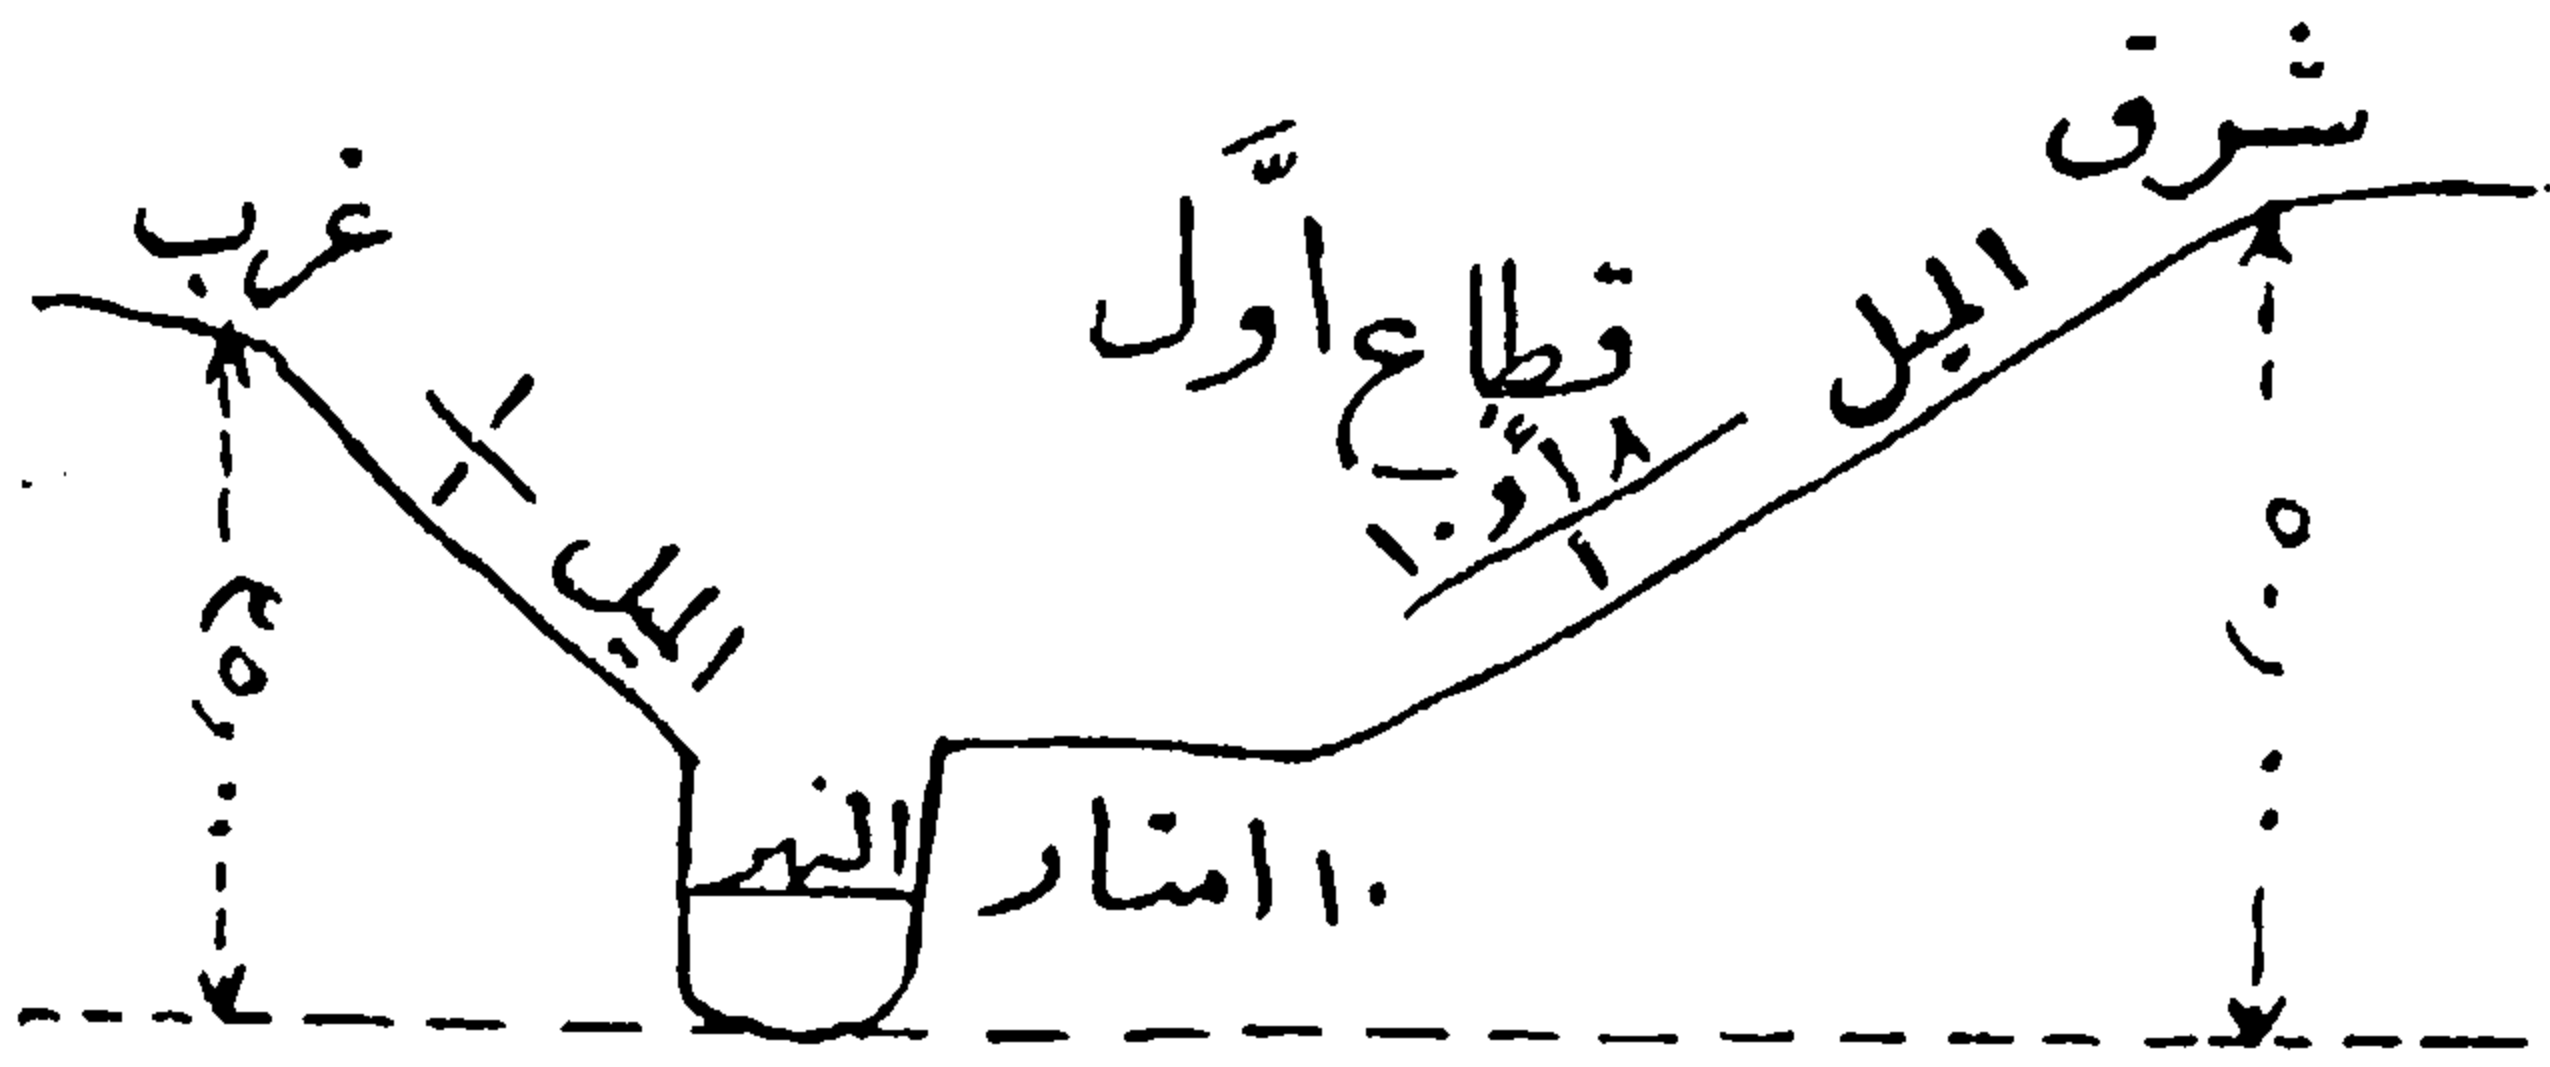 شرق
غرب
قطاع اوَّل
الميل
١
١
الميل
٥٠,٠٠
النهر
١٠ امتار